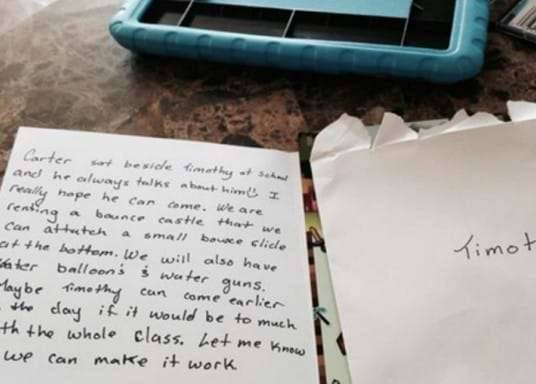 Carter sat beside Timothy at School
and he always talks about him! I
really hope he can come. We are
renting a bounce castle that we
can attatch a small bounce slide
at the bottom. We will also have
Water balloon's & water guns.
Maybe Timothy can come earlier
the day if it would be to much
the whole class. Let me know
we can make it work
Timot